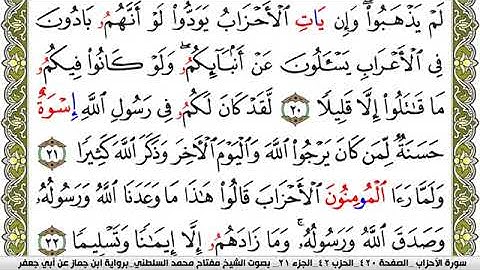 لَمْ يَذْهَبُوا۟ وَإِن يَاتِ الْأَحْزَابُ يَوَدُّوا۟ لَوْ أَنَّهُمُۥ بَادُونَ
فِى الْأَعْرَابِ يَسْـَٔلُونَ عَنْ أَنۢبَآئِكُمُۥ وَلَوْ كَانُوا۟ فِيكُمُۥ
مَا قَٰتَلُوٓا۟ إِلَّا قَلِيلًا ٢٠ لَقَدْ كَانَ لَكُمُۥ فِى رَسُولِ اللَّهِ إِسْوَةٌ
حَسَنَةٌ لِّمَن كَانَ يَرْجُوا۟ اللَّهَ وَالْيَوْمَ الْأَخِرَ وَذَكَرَ اللَّهَ كَثِيرًا ٢١
وَلَمَّا رَءَا الْمُومِنُونَ الْأَحْزَابَ قَالُوا۟ هَٰذَا مَا وَعَدَنَا اللَّهُ وَرَسُولُهُۥ
وَصَدَقَ اللَّهُ وَرَسُولُهُۥ وَمَا زَادَهُمُۥ إِلَّا إِيمَٰنًا وَتَسْلِيمًا ٢٢
سورة الأحزاب_ الصفحة ٤٢٠_ الحزب ٤٢_ الجزء ٢١_ بصوت الشيخ مفتاح محمد السلطني_ برواية ابن جماز عن أبي جعفر